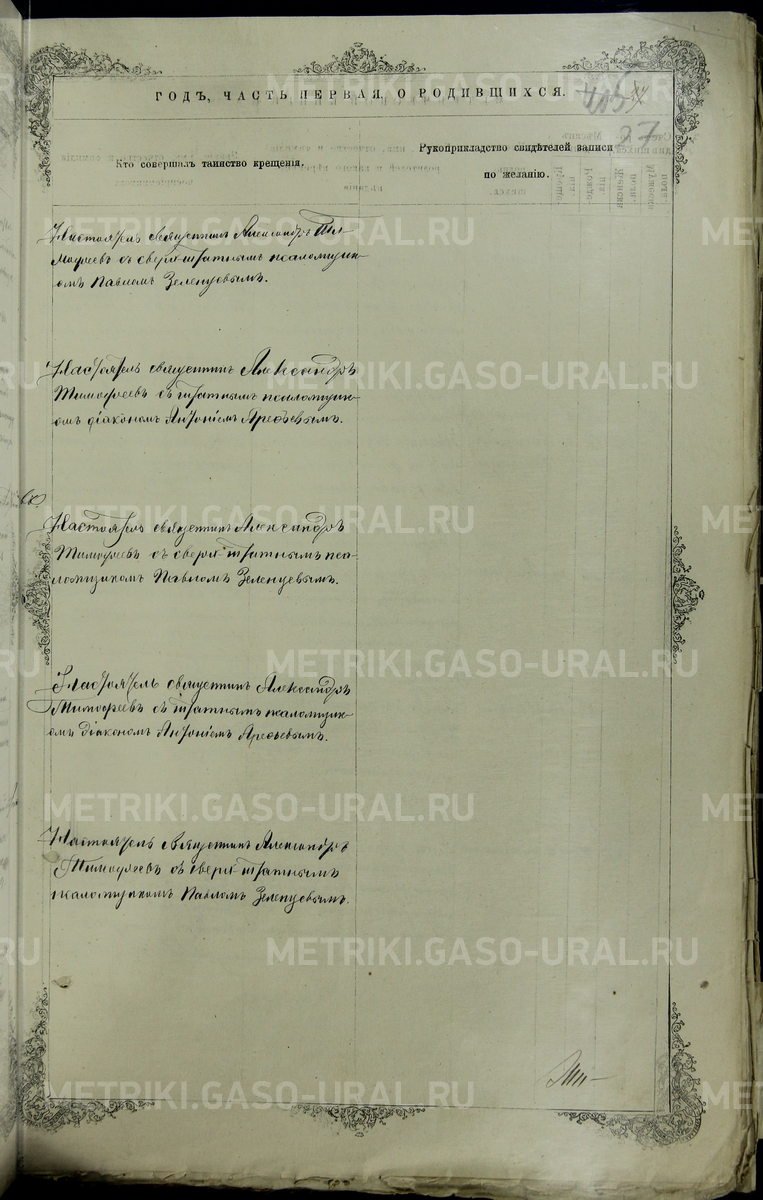 ГОДЪ, ЧАСТЬ ПЕРВАЯ, О РОДИВШИХСЯ.
27
Кто совершалъ таинство крещенія.
Рукоприкладство свидѣтелей записи
по желанію.
Настоятель священникъ Александръ Ти-
мофеевъ съ сверх-штатнымъ псаломщик-
омъ Павломъ Зеленцевымъ.
Настоятель священникъ Александръ
Тимофеевъ съ штатнымъ псаломщик-
омъ діакономъ Антоніемъ Арефьевымъ.
Настоятель священникъ Александръ
Тимофеевъ съ сверх-штатнымъ пса-
ломщикомъ Павломъ Зеленцевымъ.
Настоятель священникъ Александръ
Тимофеевъ съ штатнымъ псаломщик-
омъ діакономъ Антоніемъ Арефьевымъ.
Настоятель священникъ Александръ
Тимофеевъ съ сверх-штатнымъ
псаломщикомъ Павломъ Зеленцевымъ.
METRIKI.GASO-URAL.RU